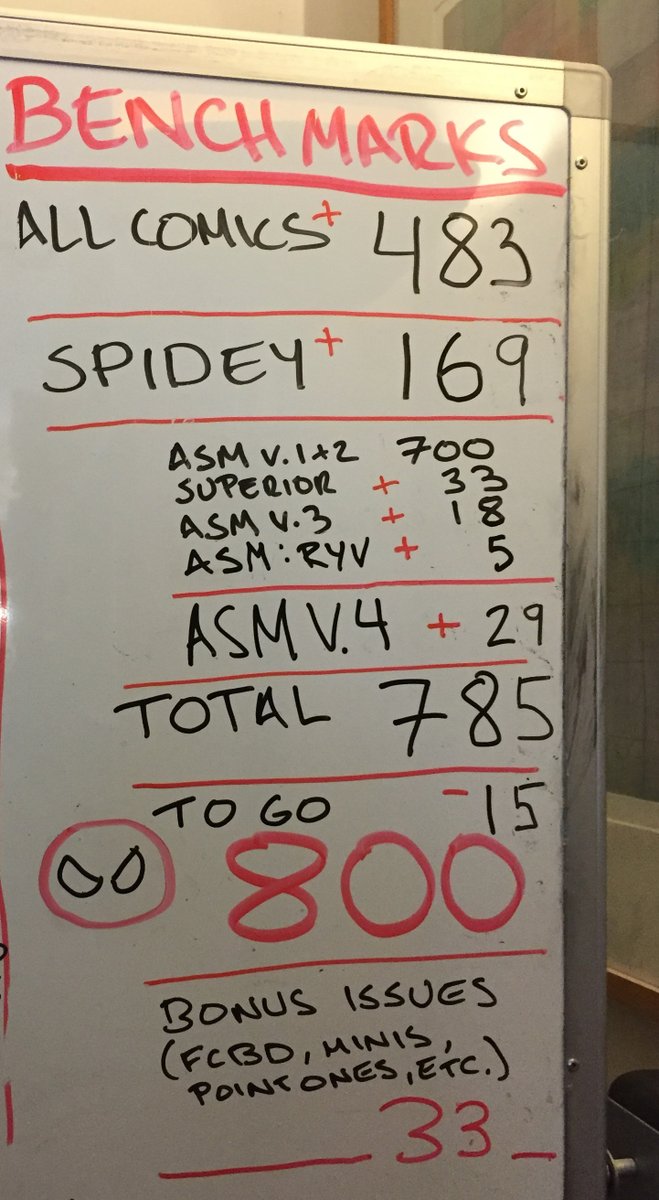 BENCHMARKS
ALL COMICS+ 483
SPIDEY+ 169
ASM V.1+2 700
SUPERIOR + 33
ASM V.3 + 18
ASM: RYV + 5
ASM V.4 + 29
TOTAL 785
TO GO -15
800
BONUS ISSUES
(FCBD, MINIS,
POINT ONES, ETC.)
33